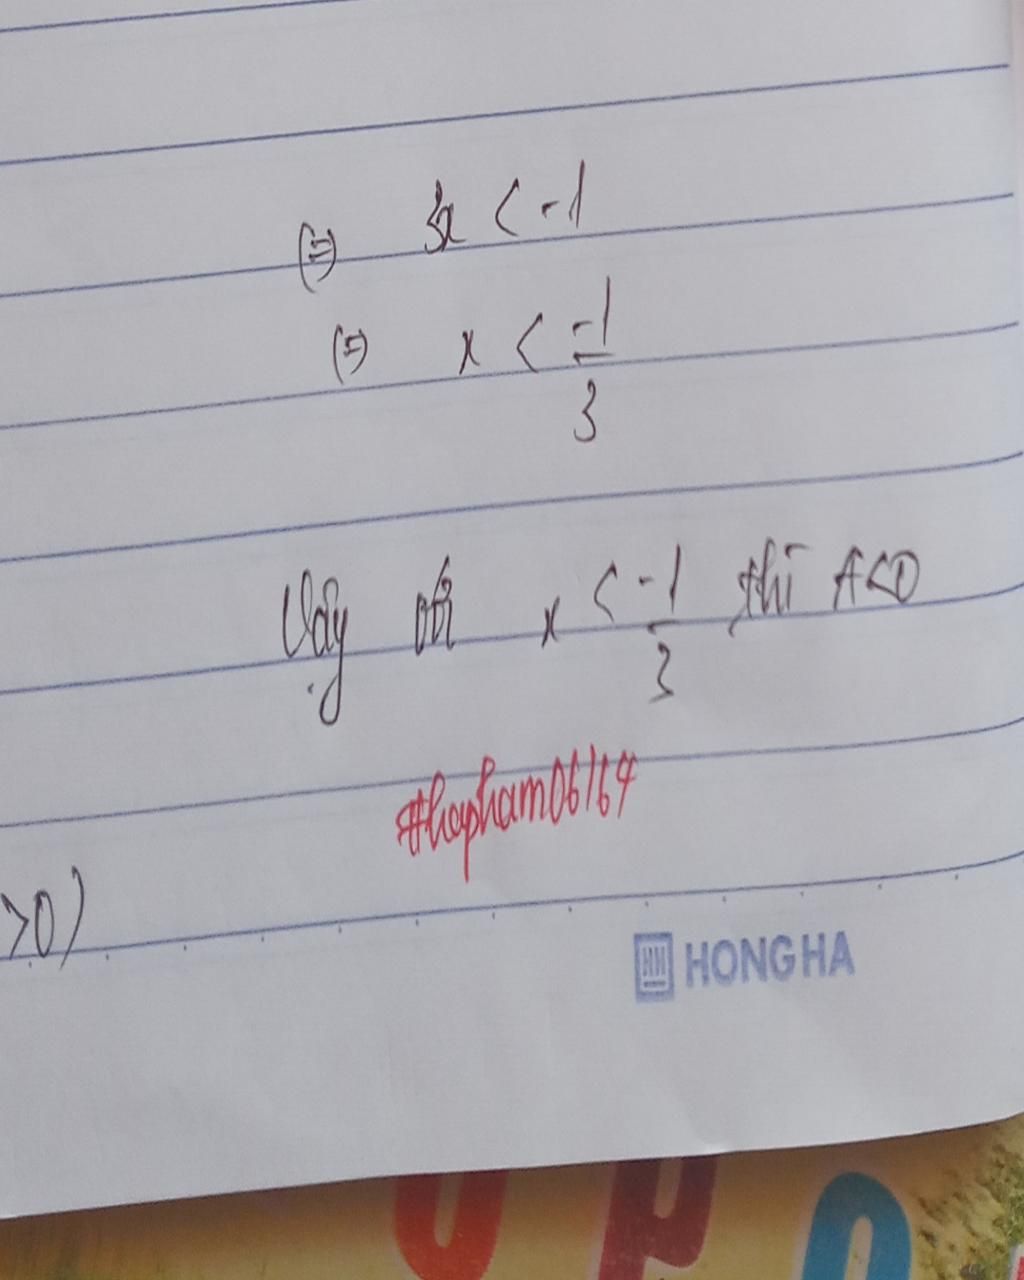 (=) 3x < -1
(=) x < -1/3
Vậy với x < -1/3 thì A<0
#hapham06164
>0)
HH HONG HA